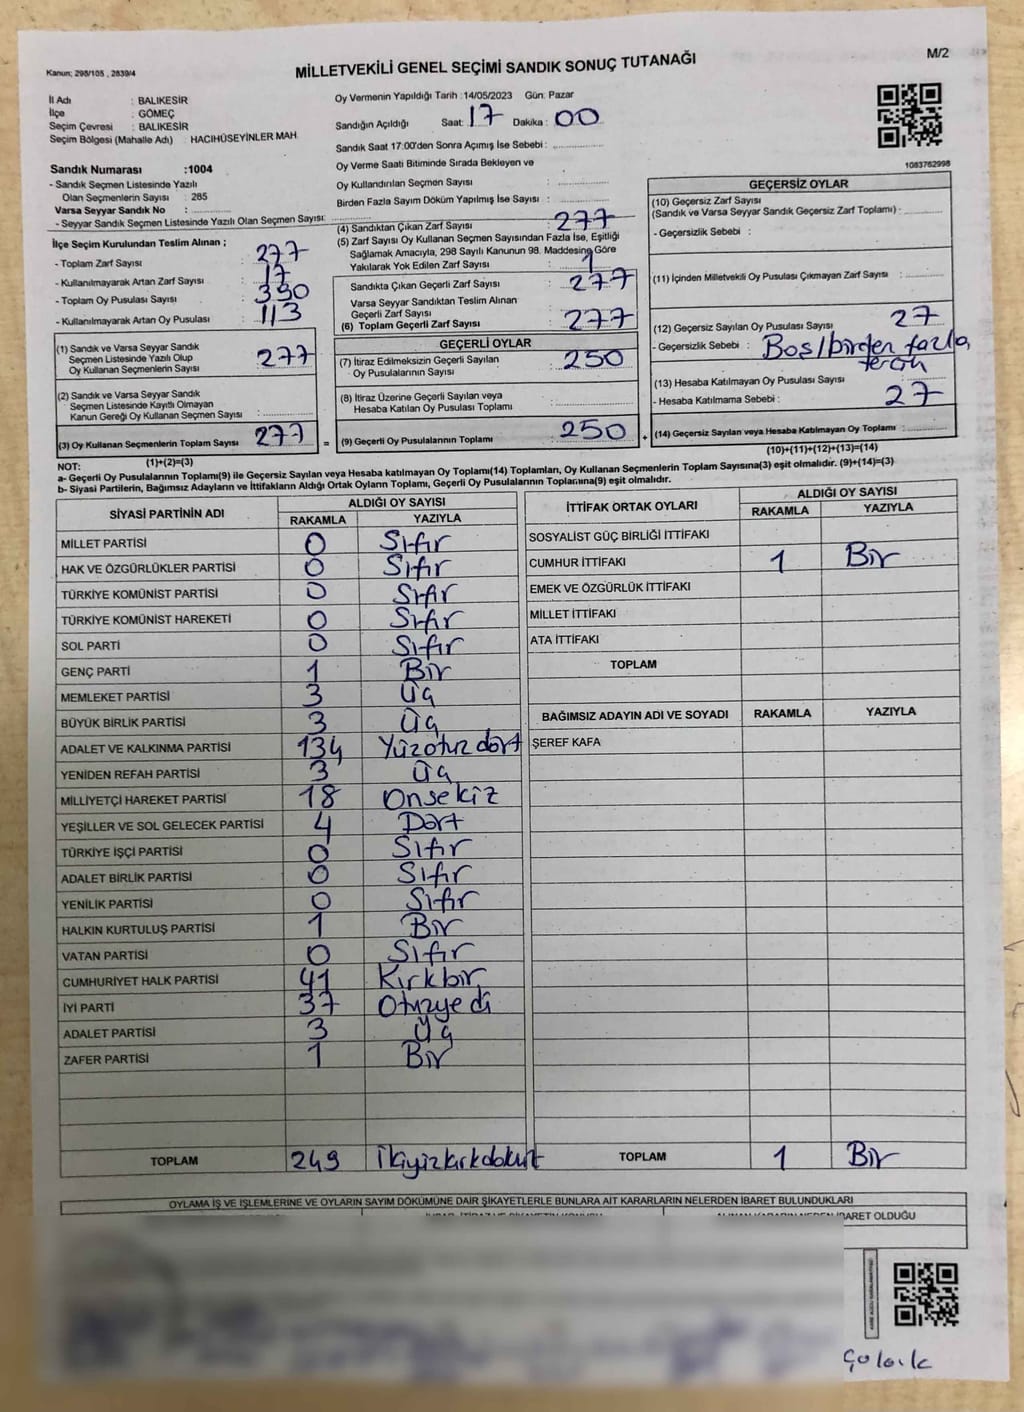 Kanun; 298/105 , 2839/4
MİLLETVEKİLİ GENEL SEÇİMİ SANDIK SONUÇ TUTANAĞI
M/2
İl Adı : BALIKESİR
İlçe : GÖMEÇ
Seçim Çevresi : BALIKESİR
Seçim Bölgesi (Mahalle Adı) : HACIHÜSEYİNLER MAH.
Sandık Numarası :1004
- Sandık Seçmen Listesinde Yazılı
Olan Seçmenlerin Sayısı : 285
Varsa Seyyar Sandık No :
- Seyyar Sandık Seçmen Listesinde Yazılı Olan Seçmen Sayısı:
İlçe Seçim Kurulundan Teslim Alınan ;
- Toplam Zarf Sayısı : 277
- Kullanılmayarak Artan Zarf Sayısı : 17
- Toplam Oy Pusulası Sayısı : 390
- Kullanılmayarak Artan Oy Pusulası : 113
(1) Sandık ve Varsa Seyyar Sandık
Seçmen Listesinde Yazılı Olup
Oy Kullanan Seçmenlerin Sayısı : 277
(2) Sandık ve Varsa Seyyar Sandık
Seçmen Listesinde Kayıtlı Olmayan
Kanun Gereği Oy Kullanan Seçmen Sayısı :
(3) Oy Kullanan Seçmenlerin Toplam Sayısı : 277 =
(1)+(2)=(3)
Oy Vermenin Yapıldığı Tarih :14/05/2023 Gün: Pazar
Sandığın Açıldığı Saat: 17 Dakika : 00
Sandık Saat 17:00'den Sonra Açımış İse Sebebi :
Oy Verme Saati Bitiminde Sırada Bekleyen ve
Oy Kullandırılan Seçmen Sayısı :
Birden Fazla Sayım Döküm Yapılmış İse Sayısı :
(4) Sandıktan Çıkan Zarf Sayısı : 277
(5) Zarf Sayısı Oy Kullanan Seçmen Sayısından Fazla İse, Eşitliği
Sağlamak Amacıyla, 298 Sayılı Kanunun 98. Maddesine Göre
Yakılarak Yok Edilen Zarf Sayısı :
Sandıkta Çıkan Geçerli Zarf Sayısı : 277
Varsa Seyyar Sandıktan Teslim Alınan
Geçerli Zarf Sayısı :
(6) Toplam Geçerli Zarf Sayısı : 277
GEÇERLİ OYLAR
(7) İtiraz Edilmeksizin Geçerli Sayılan
Oy Pusulalarının Sayısı : 250
(8) İtiraz Üzerine Geçerli Sayılan veya
Hesaba Katılan Oy Pusulası Toplamı :
(9) Geçerli Oy Pusulalarının Toplamı : 250 +
1083762998
GEÇERSİZ OYLAR
(10) Geçersiz Zarf Sayısı
(Sandık ve Varsa Seyyar Sandık Geçersiz Zarf Toplamı) :
- Geçersizlik Sebebi :
(11) İçinden Milletvekili Oy Pusulası Çıkmayan Zarf Sayısı :
(12) Geçersiz Sayılan Oy Pusulası Sayısı : 27
- Geçersizlik Sebebi : Boş/birden fazla
tercih
(13) Hesaba Katılmayan Oy Pusulası Sayısı
- Hesaba Katılmama Sebebi : 27
(14) Geçersiz Sayılan veya Hesaba Katılmayan Oy Toplamı :
(10)+(11)+(12)+(13)=(14)
NOT:
a- Geçerli Oy Pusulalarının Toplamı(9) ile Geçersiz Sayılan veya Hesaba katılmayan Oy Toplamı(14) Toplamları, Oy Kullanan Seçmenlerin Toplam Sayısına(3) eşit olmalıdır. (9)+(14)=(3)
b- Siyasi Partilerin, Bağımsız Adayların ve İttifakların Aldığı Ortak Oyların Toplamı, Geçerli Oy Pusulalarının Toplamına(9) eşit olmalıdır.
SİYASİ PARTİNİN ADI ALDIĞI OY SAYISI
RAKAMLA YAZIYLA
MİLLET PARTİSİ 0 Sıfır
HAK VE ÖZGÜRLÜKLER PARTİSİ 0 Sıfır
TÜRKİYE KOMÜNİST PARTİSİ 0 Sıfır
TÜRKİYE KOMÜNİST HAREKETİ 0 Sıfır
SOL PARTİ 0 Sıfır
GENÇ PARTİ 1 Bir
MEMLEKET PARTİSİ 3 Üç
BÜYÜK BİRLİK PARTİSİ 3 Üç
ADALET VE KALKINMA PARTİSİ 134 Yüzotuz dört
YENİDEN REFAH PARTİSİ 3 Üç
MİLLİYETÇİ HAREKET PARTİSİ 18 Onsekiz
YEŞİLLER VE SOL GELECEK PARTİSİ 4 Dört
TÜRKİYE İŞÇİ PARTİSİ 0 Sıfır
ADALET BİRLİK PARTİSİ 0 Sıfır
YENİLİK PARTİSİ 0 Sıfır
HALKIN KURTULUŞ PARTİSİ 1 Bir
VATAN PARTİSİ 0 Sıfır
CUMHURİYET HALK PARTİSİ 41 Kırkbir
İYİ PARTİ 37 Otuzyedi
ADALET PARTİSİ 3 Üç
ZAFER PARTİSİ 1 Bir
TOPLAM 249 İkiyüzkırkdokuz
İTTİFAK ORTAK OYLARI ALDIĞI OY SAYISI
RAKAMLA YAZIYLA
SOSYALİST GÜÇ BİRLİĞİ İTTİFAKI
CUMHUR İTTİFAKI 1 Bir
EMEK VE ÖZGÜRLÜK İTTİFAKI
MİLLET İTTİFAKI
ATA İTTİFAKI
TOPLAM
BAĞIMSIZ ADAYIN ADI VE SOYADI RAKAMLA YAZIYLA
ŞEREF KAFA
TOPLAM 1 Bir
OYLAMA İŞ VE İŞLEMLERİNE VE OYLARIN SAYIM DÖKÜMÜNE DAİR ŞİKAYETLERLE BUNLARA AİT KARARLARIN NELERDEN İBARET BULUNDUKLARI
İBARET OLDUĞU